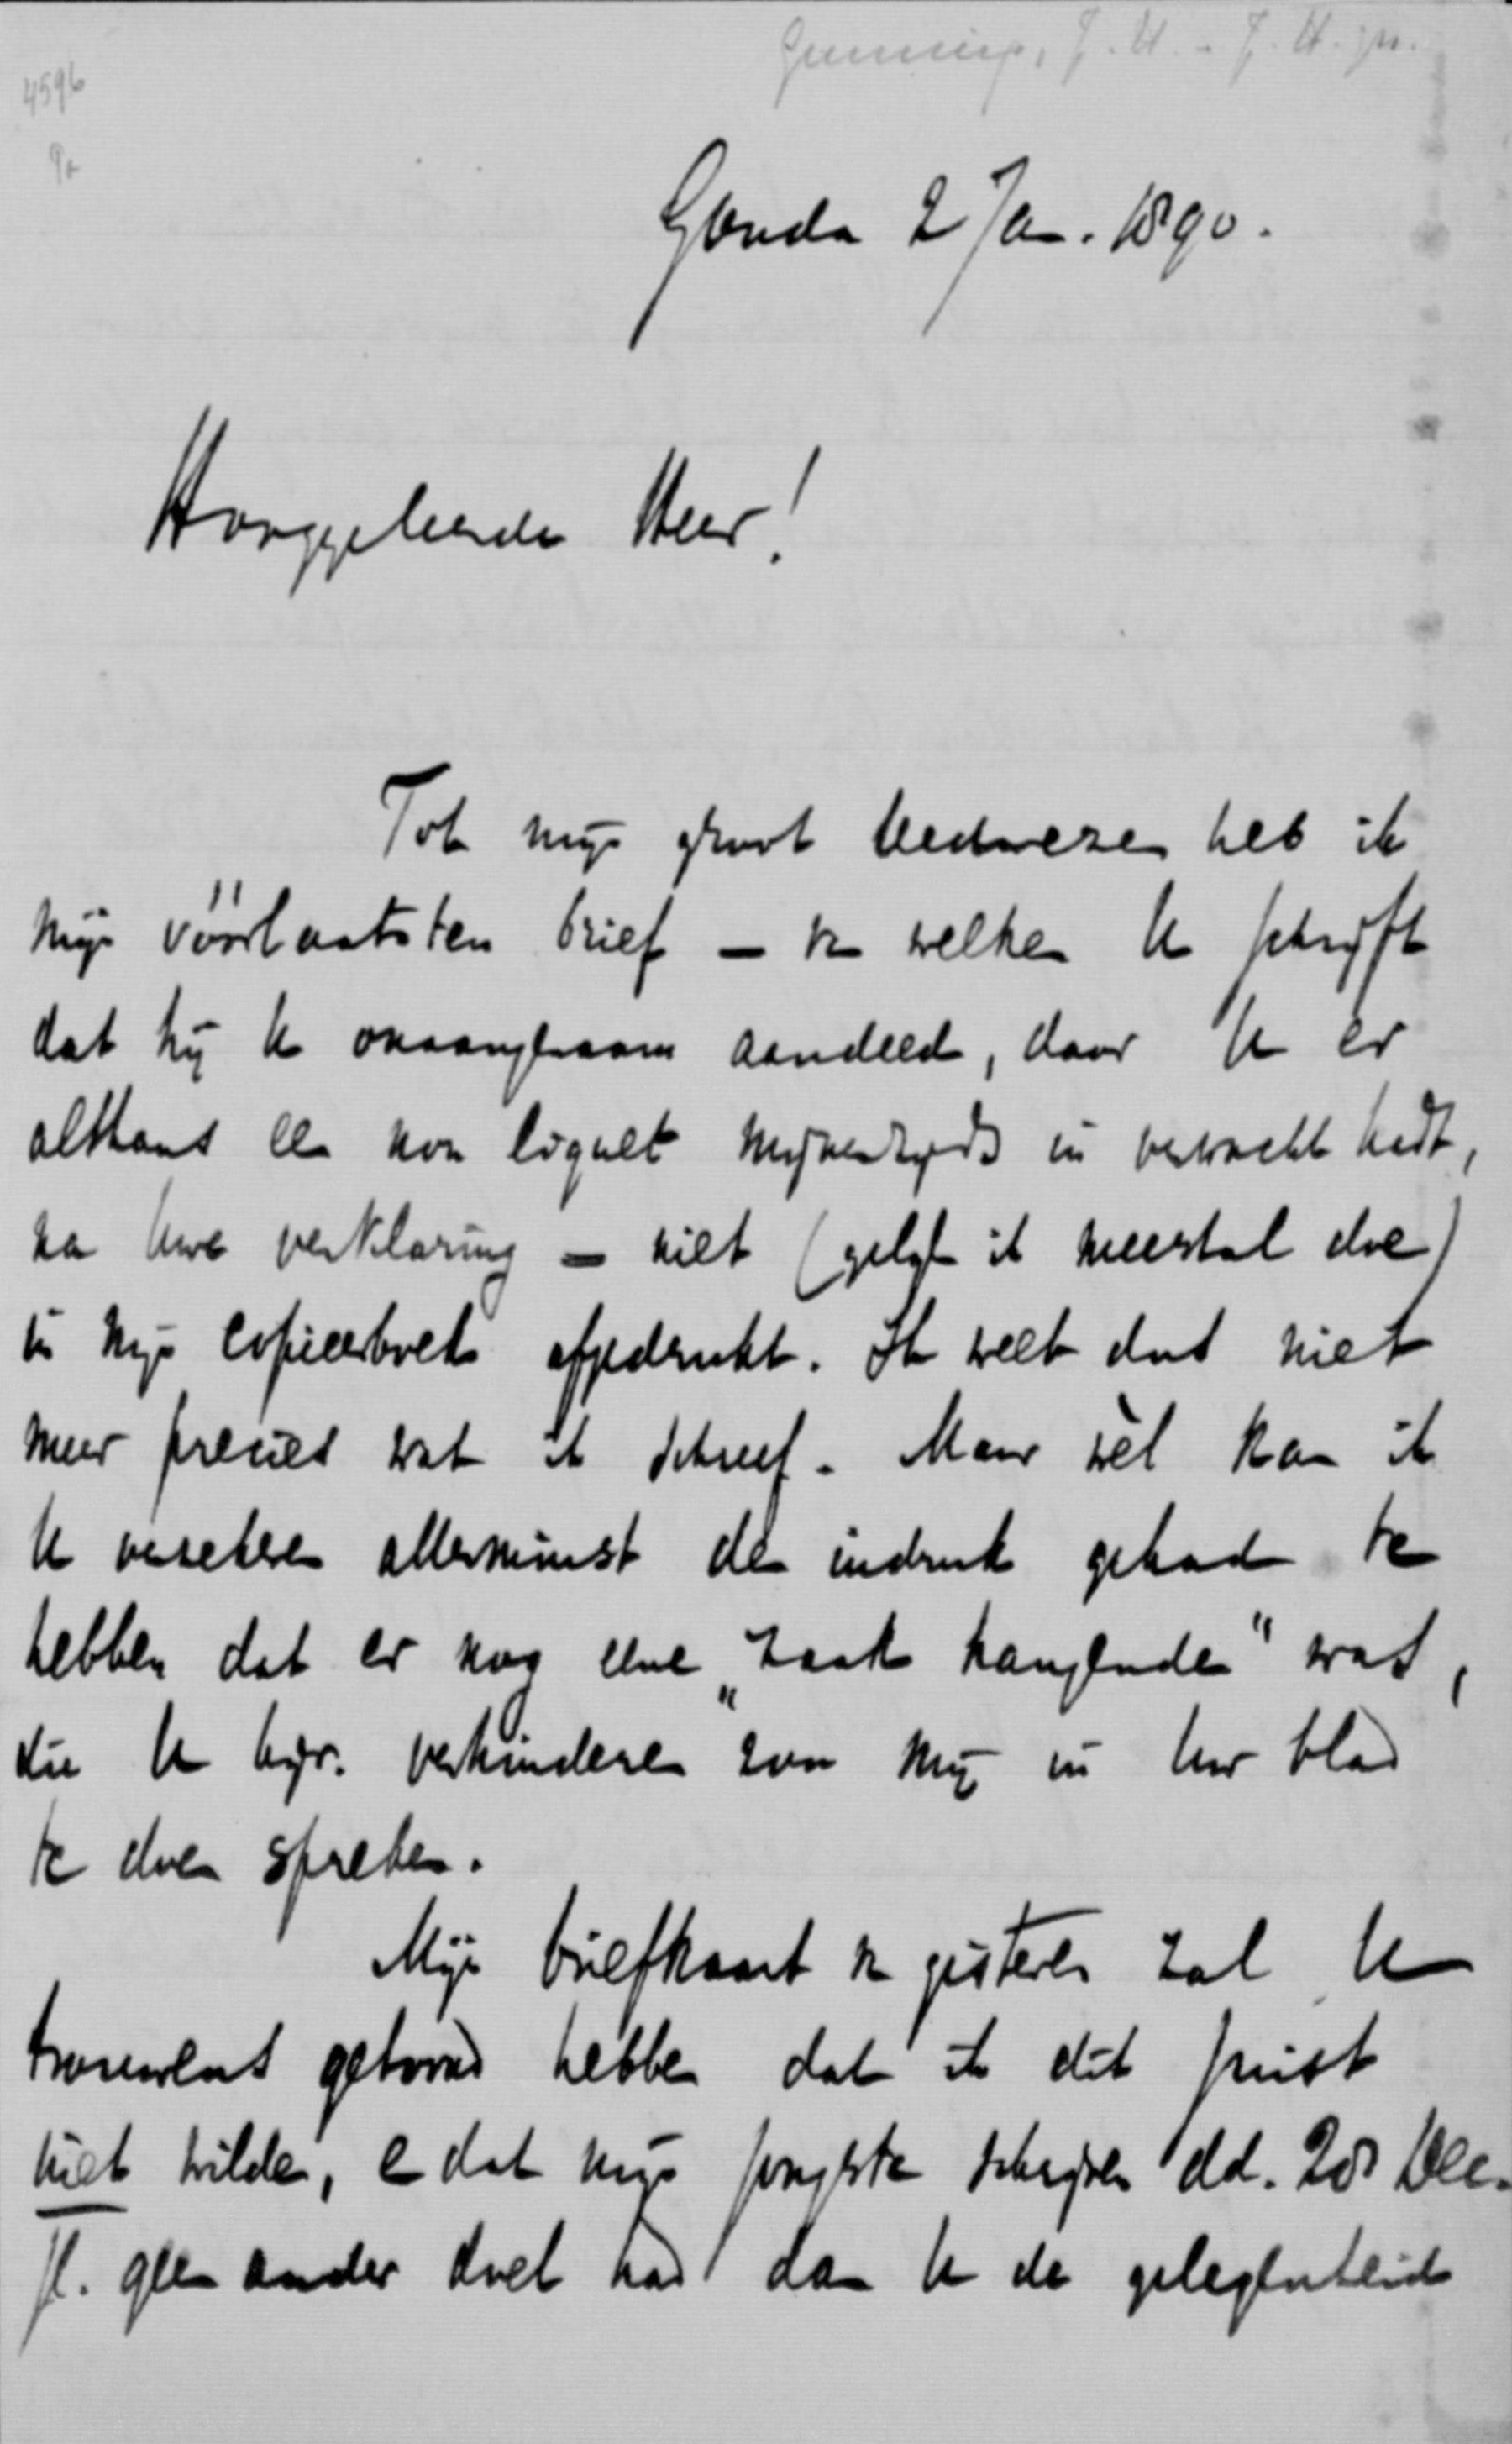 4596
Gunning, J. H. - J. H. zn.
Gouda 2 Jan. 1890.
Hooggeleerde Heer!
Tot mijn groot leedwezen heb ik
mijn vóórlaatsten brief — van welken U schrijft
dat hij U onaangenaam aandeed, daar U er
althans een non liquet mijnerzijds in verwacht hadt,
na Uwe verklaring — niet (gelijk ik meestal doe)
in mijn copieerboek afgedrukt. Ik weet dus niet
meer precies wat ik schreef. Maar wèl kan ik
U verzekeren allerminst den indruk gehad te
hebben dat er nog eene „zaak hangende" was,
die U bijv. verhinderen zou mij in Uw blad
te doen spreken.
Mijn briefkaart van gisteren zal U
trouwens getoond hebben dat ik dit juist
niet wilde, en dat mijn jongste schrijven dd. 28 Dec.
jl. geen ander doel had dan U de gelegenheid